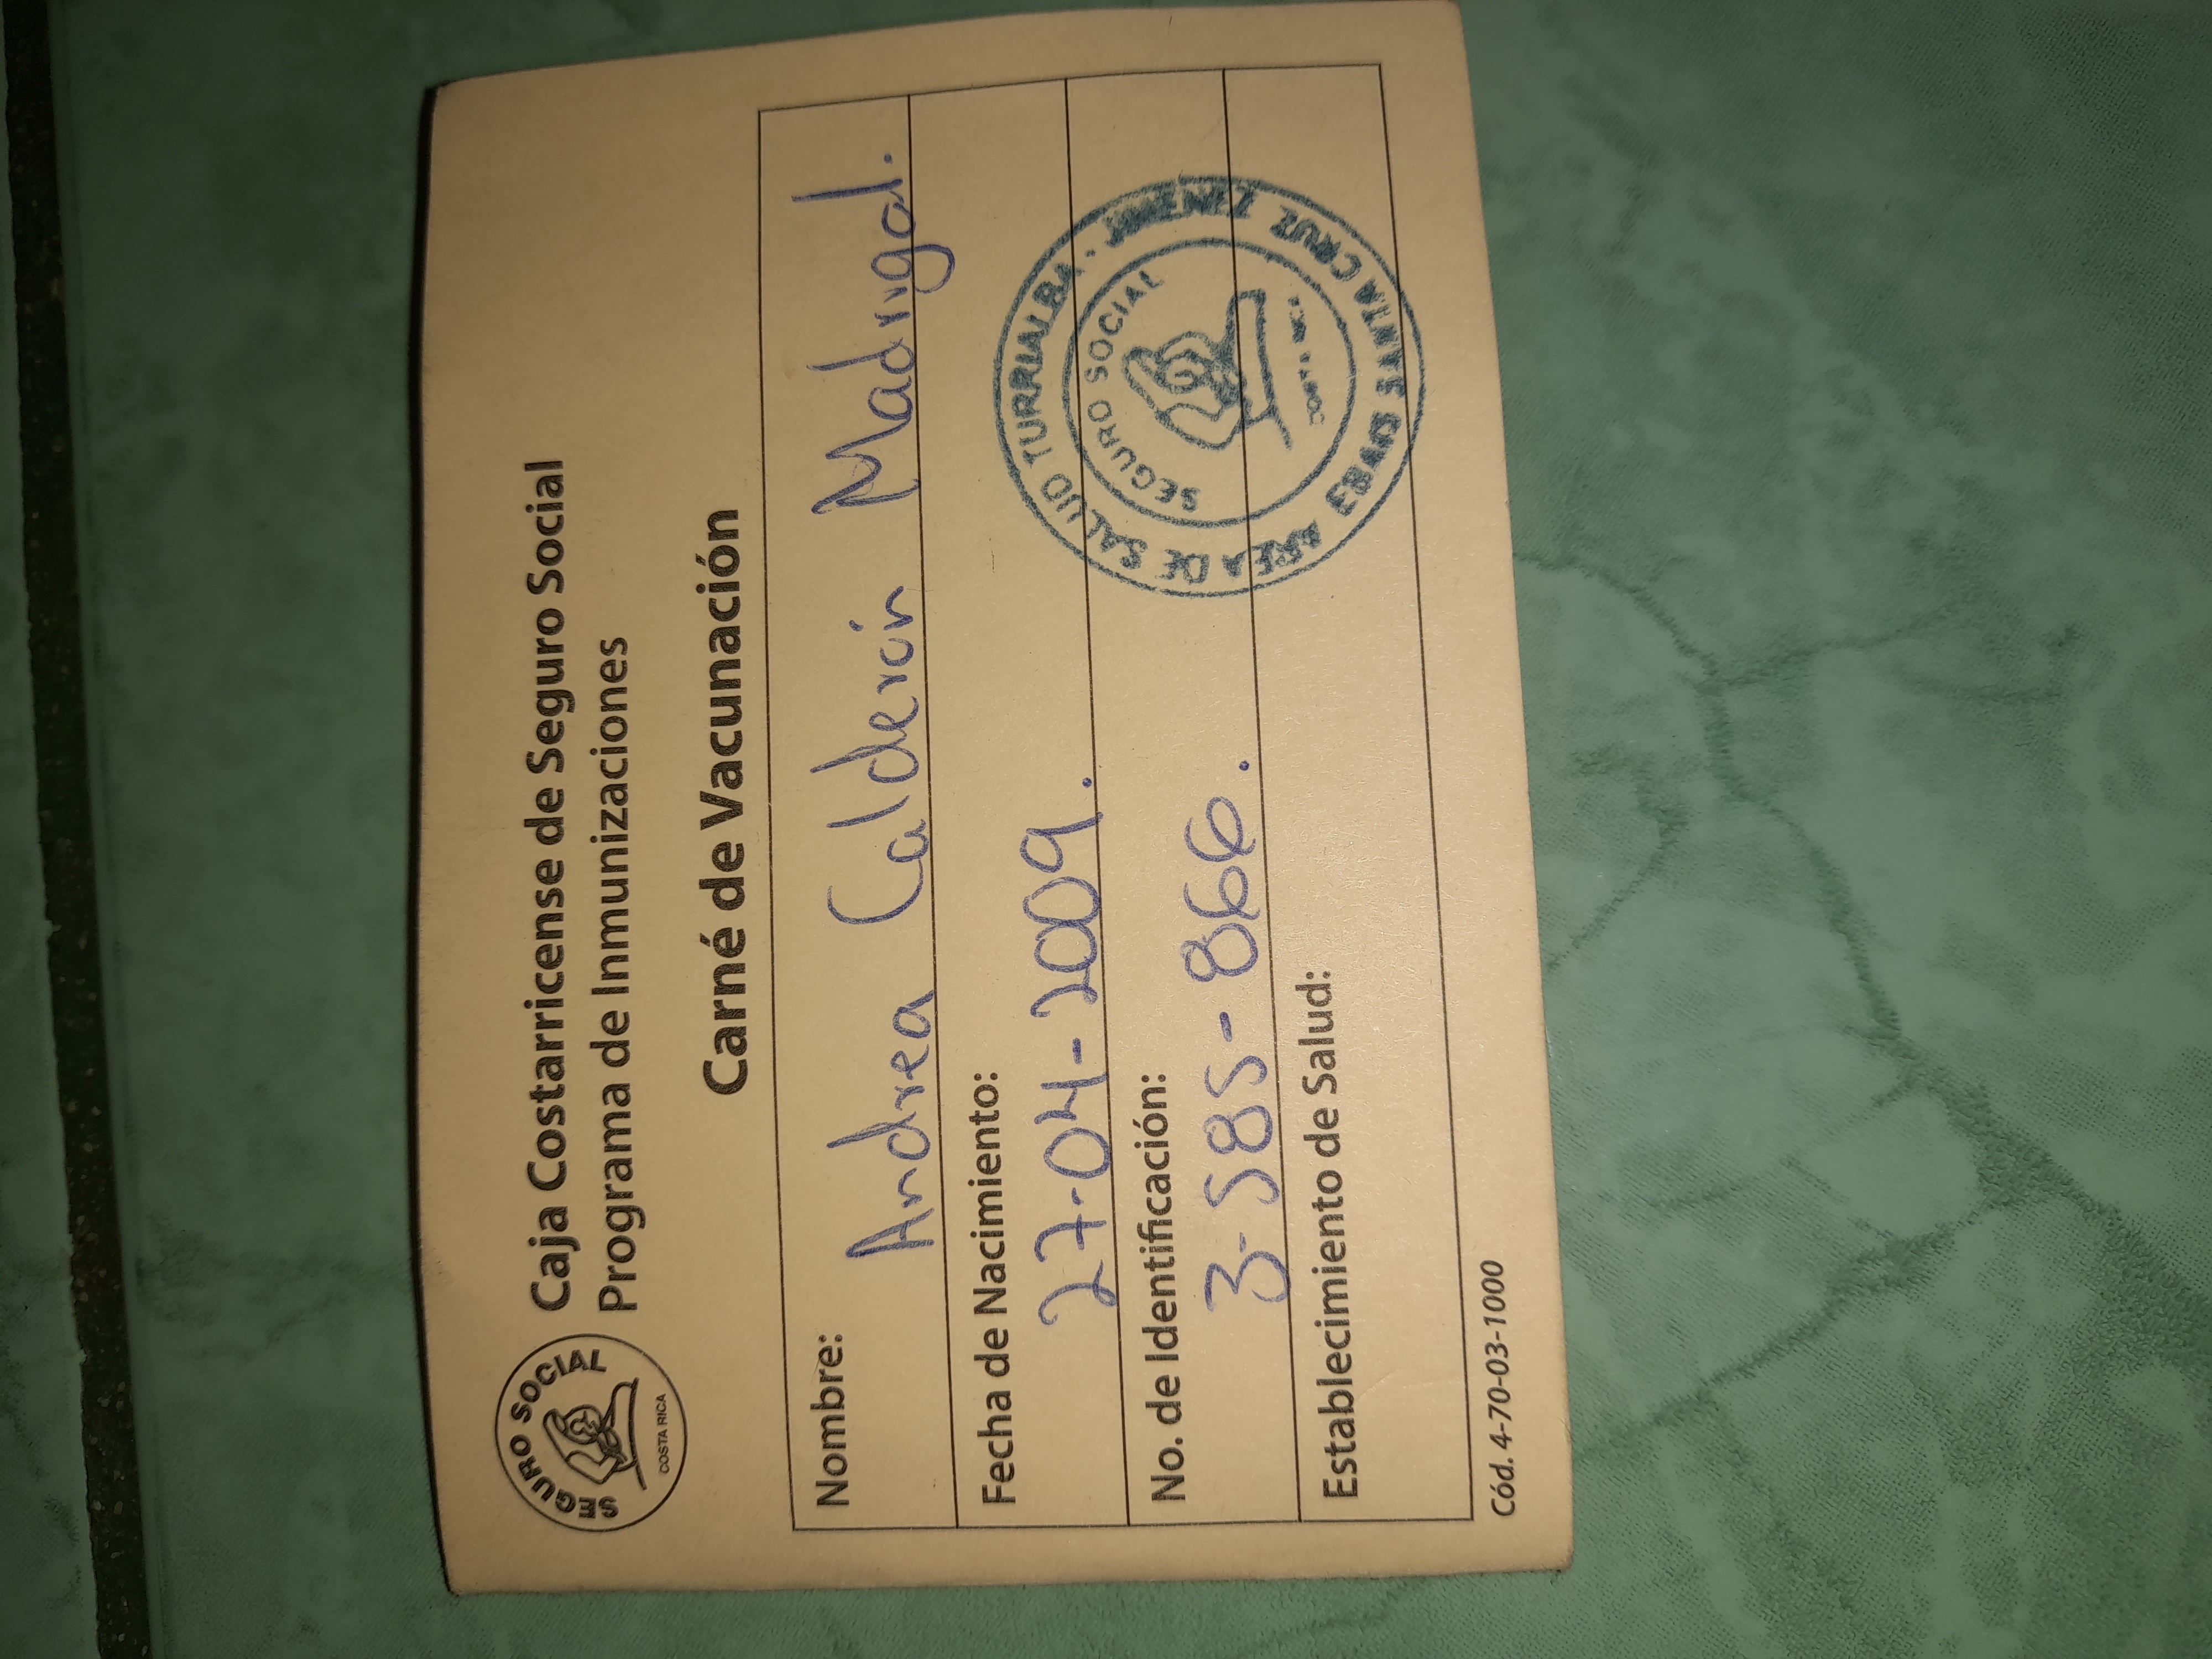 SEGURO SOCIAL
COSTA RICA
Caja Costarricense de Seguro Social
Programa de Inmunizaciones
Carné de Vacunación
Nombre:
Andrea Calderón Madrigal.
Fecha de Nacimiento:
27-04-2009.
No. de Identificación:
3-585-866.
Establecimiento de Salud:
AREA DE SALUD TURRIALBA
SANTA CRUZ
SEGURO SOCIAL
COSTA RICA
Cód. 4-70-03-1000